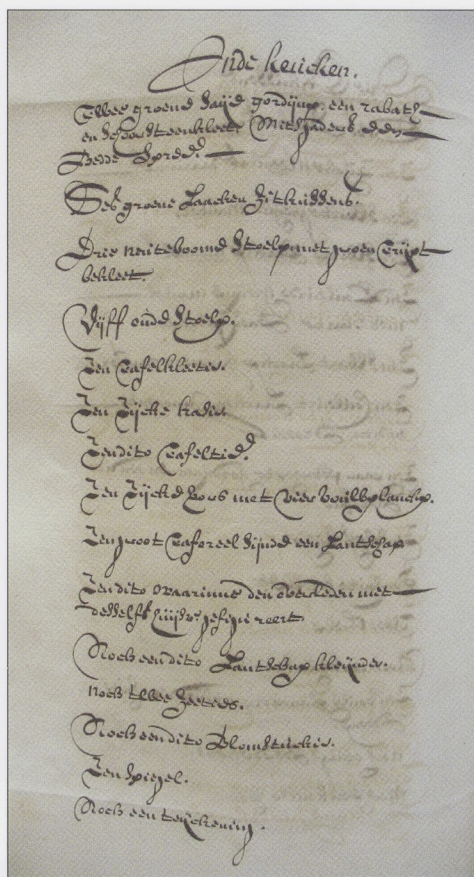 Inde keucken.
Twee groene saijd gordijnen, een rabath
en schoudtcenkleet
Bedde Spreed.
Ses groene Laacken Zitkussens.
Drie neuteboome Stoelen met groen Trijpt
bekleet.
Vijff oude Stoelen.
Een Tafelkleetie.
Een Eijcke kadis
Een dito Tafeltie.
Een Eijcke met vier
Een groot Taforeel sijnde een Lantschap
Een dito waarinne den overleden met
desselfs huijsvr. gefigureert
Noch een dito Lantschap kleijnder.
Noch twee Zeeties.
Noch een dito Blomstuckie.
Een Spiegel.
Noch een teyckening.